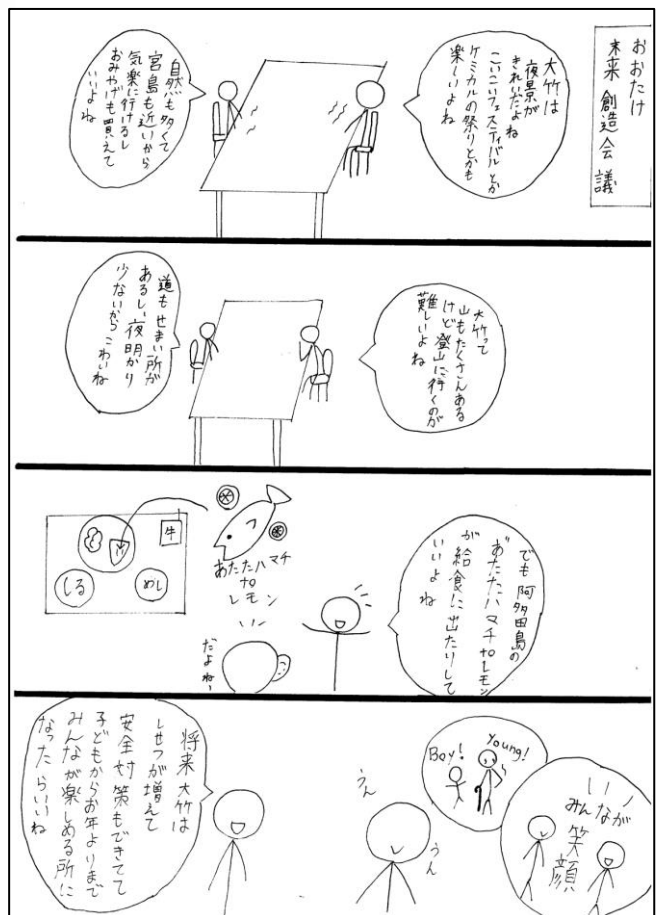 おおたけ
未来創造会議
大竹は
夜景が
きれいだよね
こいこいフェスティバルとか
ケミカルの祭りとかも
楽しいよね
自然も多くて
宮島も近いから
気楽に行けるし
おみやげも買えて
いいよね
大竹って
山もたくさんある
けど登山に行くのが
難しいよね
道もせまい所が
あるしい夜明かり
少ないからこわいね
でも阿多田島の
"あたたハマチtoレモン
が給食に出たりして
いいよね
あたたハマチ
to
レモン
牛
しる
めし
だよね、
いい
みんなが
笑顔
Young!
Boy!
うん
うん
将来大竹は
しせつが増えて
安全対策もできてて
子どもからお年よりまで
みんなが楽しめる所に
なったらいいね